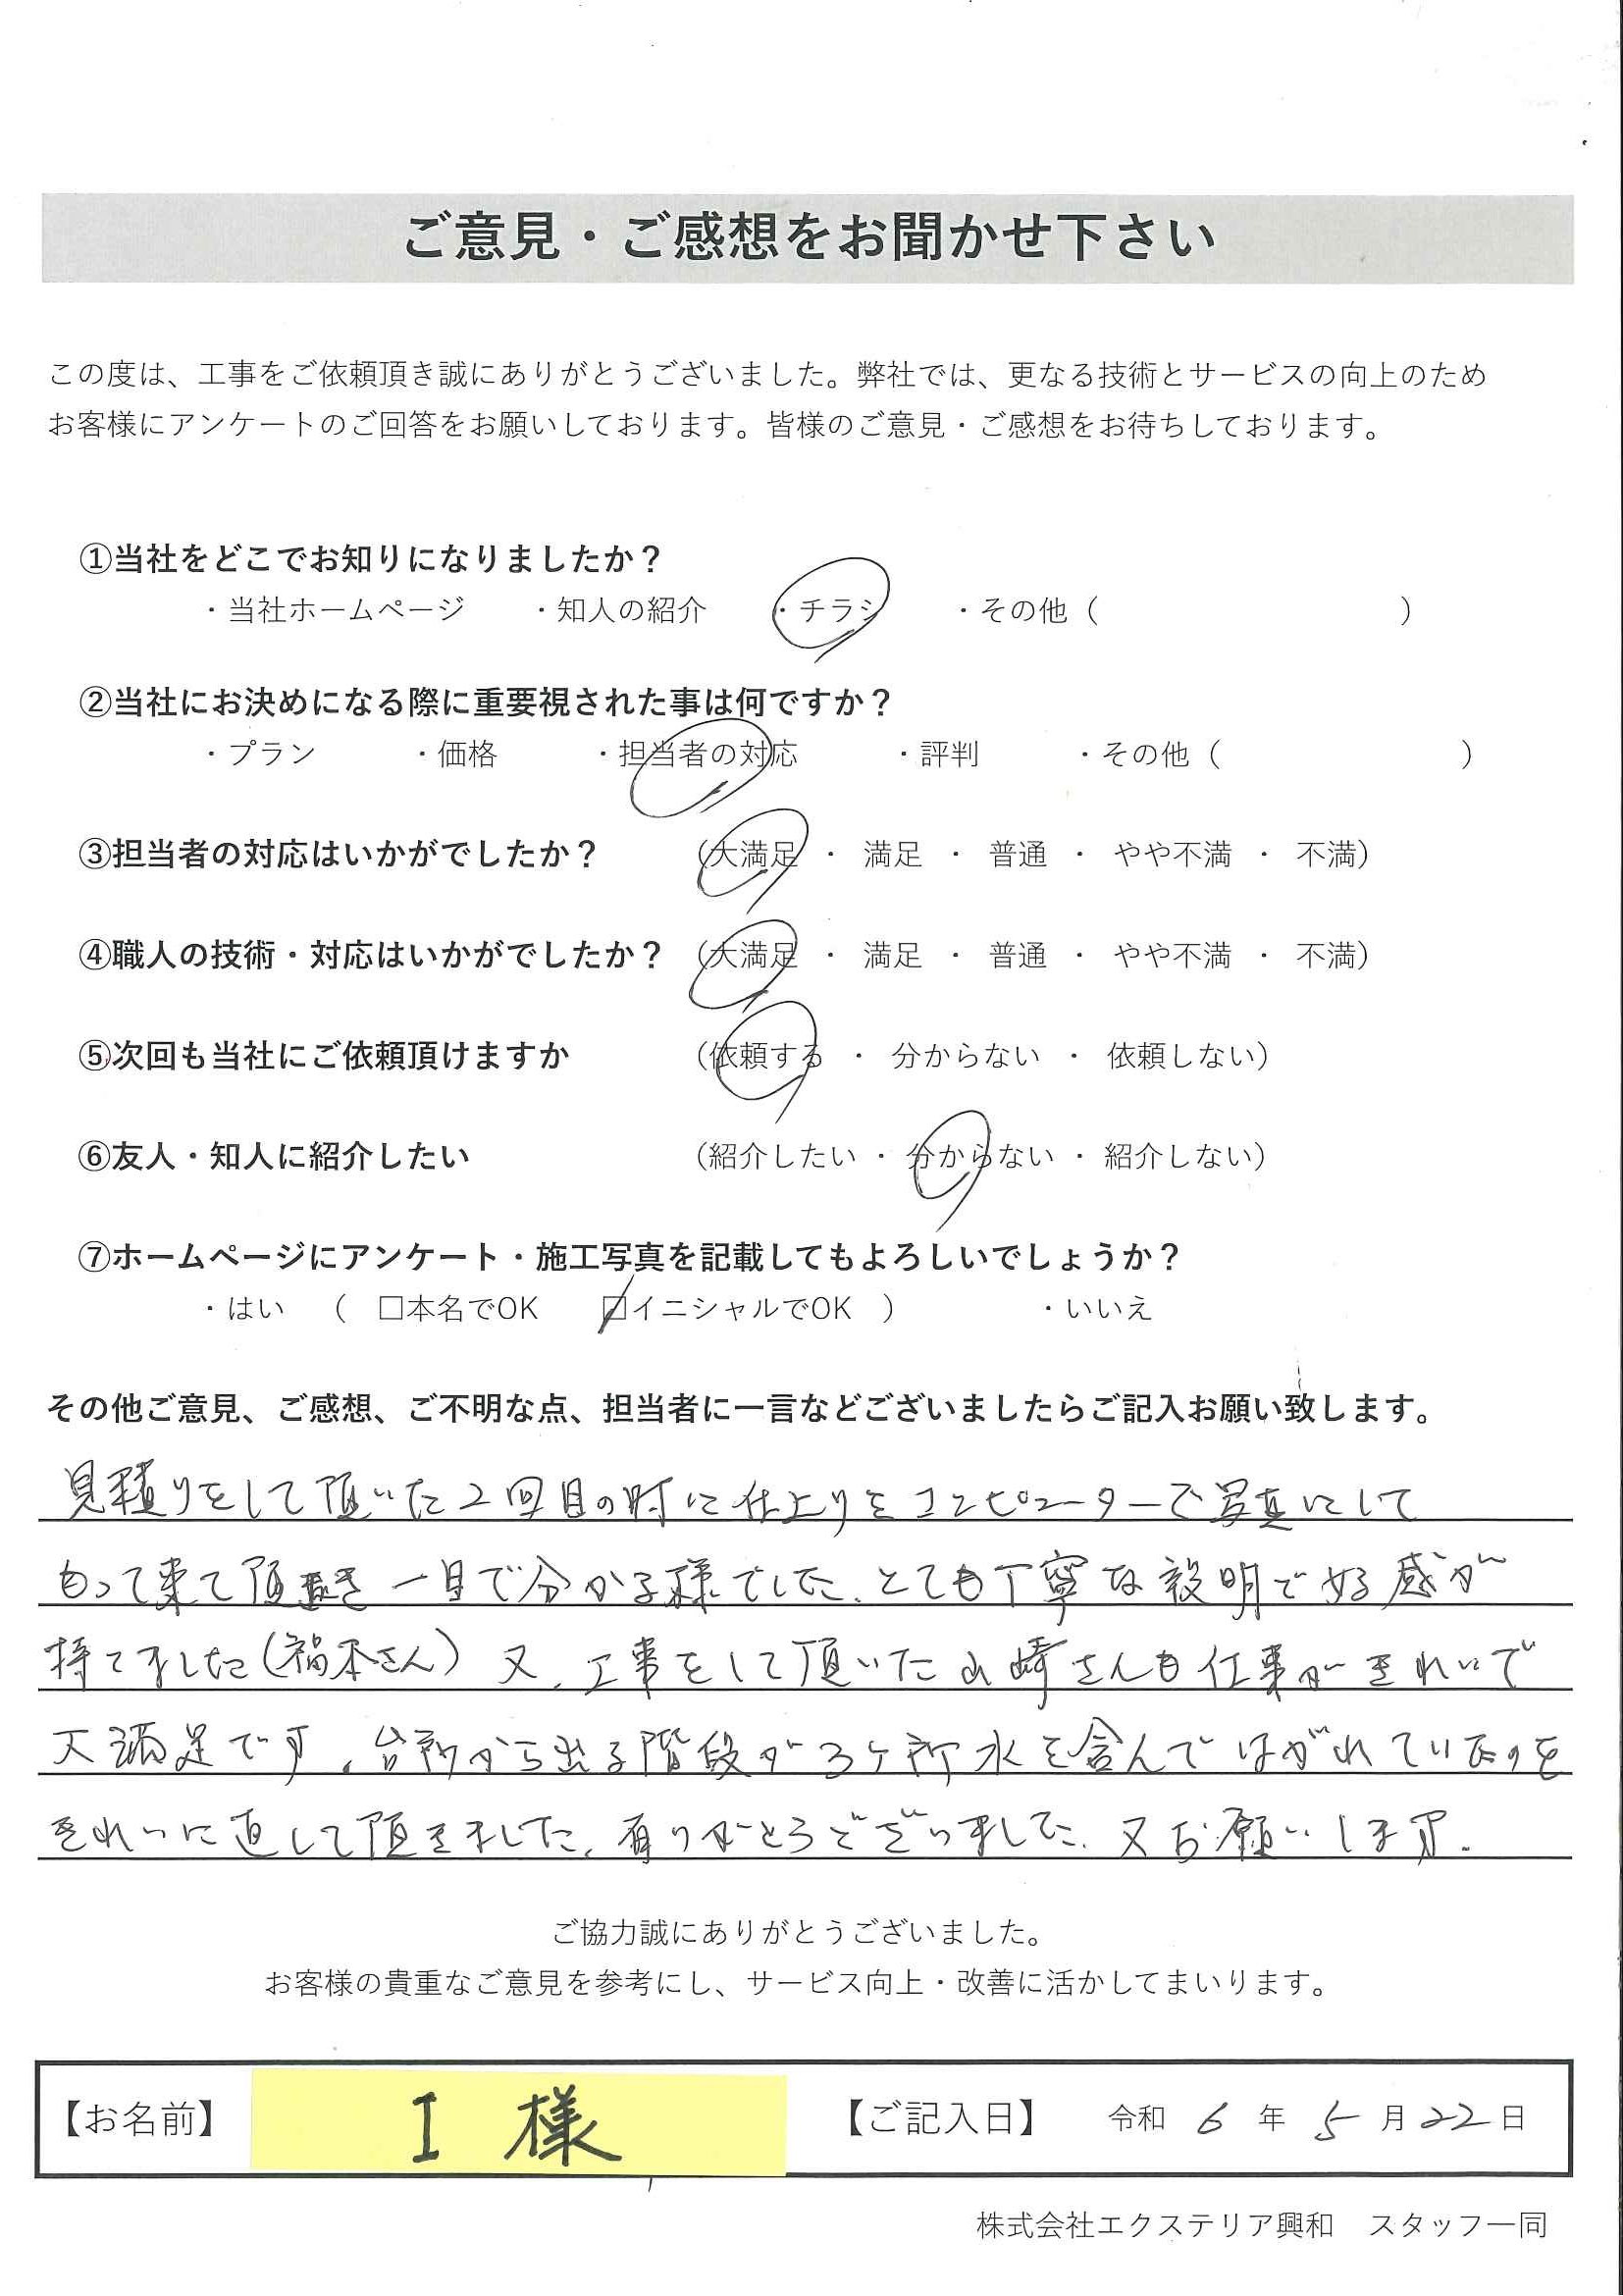 ご意見・ご感想をお聞かせ下さい
この度は、工事をご依頼頂き誠にありがとうございました。弊社では、更なる技術とサービスの向上のため
お客様にアンケートのご回答をお願いしております。皆様のご意見・ご感想をお待ちしております。
①当社をどこでお知りになりましたか？
・当社ホームページ ・知人の紹介 ・チラシ ・その他（ ）
②当社にお決めになる際に重要視された事は何ですか？
・プラン ・価格 ・担当者の対応 ・評判 ・その他（ ）
③担当者の対応はいかがでしたか？ （大満足 ・ 満足 ・ 普通 ・ やや不満 ・ 不満）
④職人の技術・対応はいかがでしたか？ （大満足 ・ 満足 ・ 普通 ・ やや不満 ・ 不満）
⑤次回も当社にご依頼頂けますか （依頼する ・ 分からない ・ 依頼しない）
⑥友人・知人に紹介したい （紹介したい ・ 分からない ・ 紹介しない）
⑦ホームページにアンケート・施工写真を記載してもよろしいでしょうか？
・はい （ □本名でOK □イニシャルでOK ） ・いいえ
その他ご意見、ご感想、ご不明な点、担当者に一言などございましたらご記入お願い致します。
見積りをして頂いた2回目の時に仕上りをコンピューターで写真にして
もって来て頂き一目で分かる様でした、とても丁寧な説明で好感が
持てました（福本さん） 又、工事をして頂いた山崎さんも仕事がきれいで
大満足です。台所から出る階段が3ヶ所水を含んではがれていたのを
きれいに直して頂きました、有りがとうございました、又お願いします。
ご協力誠にありがとうございました。
お客様の貴重なご意見を参考にし、サービス向上・改善に活かしてまいります。
【お名前】 I 様 【ご記入日】 令和 6 年 5 月 22 日
株式会社エクステリア興和 スタッフ一同